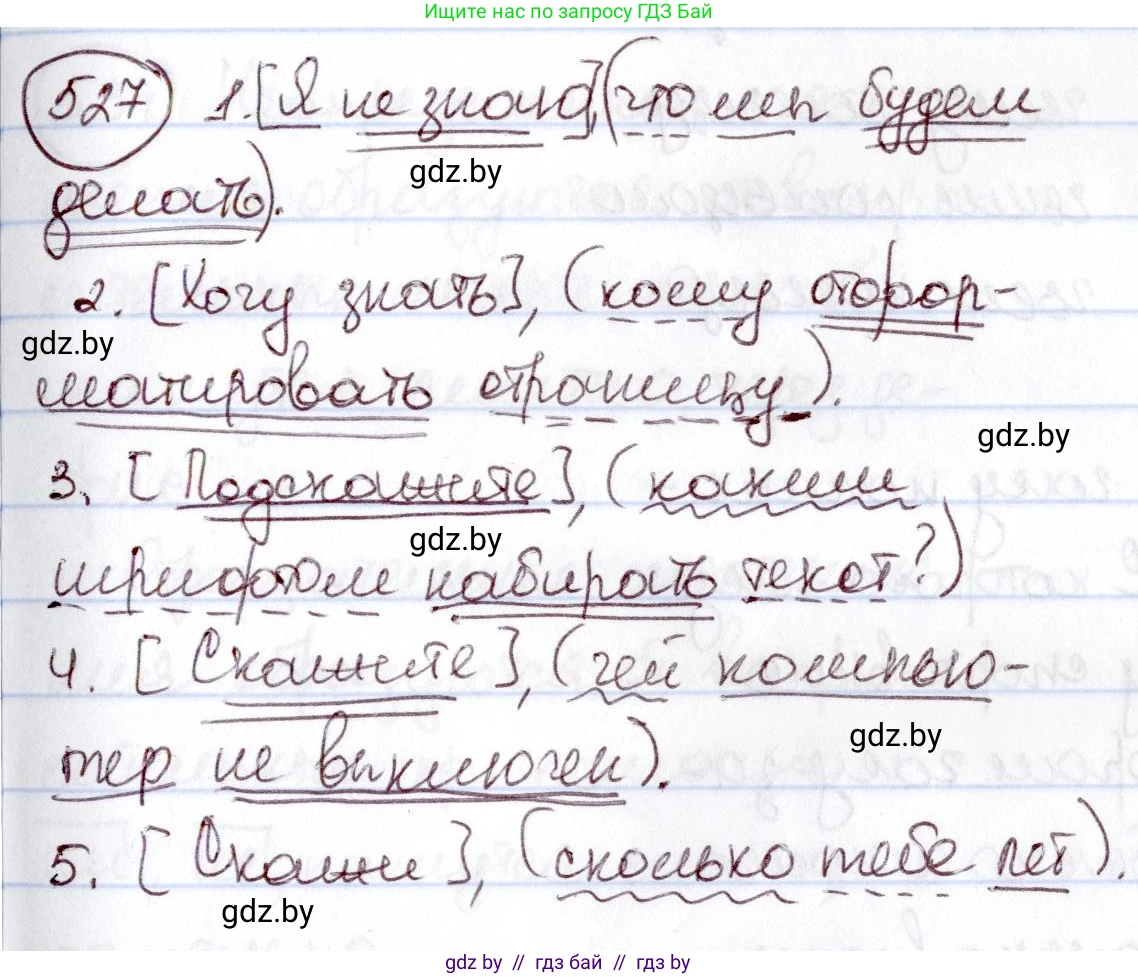 Ищите нас по запросу ГДЗ Бай
527 1. [Я не знаю], (что мы будем
gdz.by
делать).
2. [Хочу знать], (кому отфор-
gdz.by
матировать страницу).
gdz.by
3. [Подскажите], (каким
gdz.by
шрифтом набирать текст?)
4. [Скажите], (чей компью-
gdz.by
тер не выключен).
5. [Скажи], (сколько тебе лет).
gdz.by
gdz by // гдз бай // гдз by